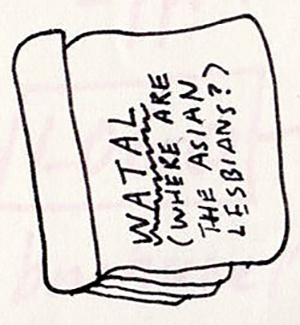 WATAL
(WHERE ARE
THE ASIAN
LESBIANS?)